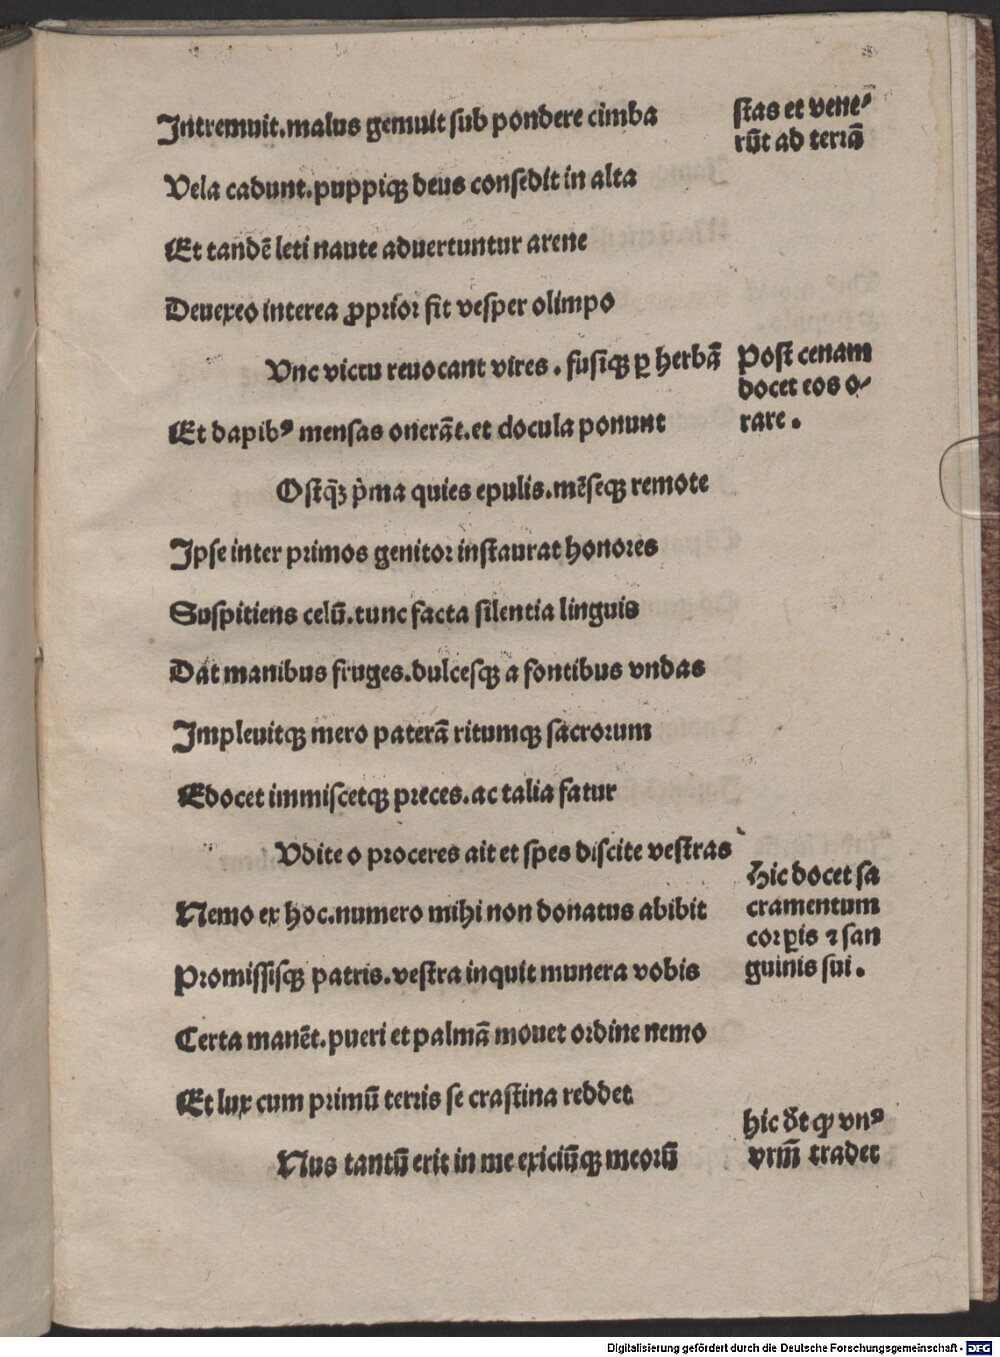 Intremuit.malus gemuit sub pondere cimba
Vela cadunt.puppiqꝫ deus consedit in alta
Et tandē leti naute aduertuntur arene
Deuexeo interea ꝓprior fit vesper olimpo
Vnc victu reuocant vires . fusiqꝫ ꝑ herbā
Et dapibꝰ mensas onerāt.et docula ponunt
Ostqꝫ̄ pͥma quies epulis.mēseqꝫ remote
Ipse inter primos genitor instaurat honores
Suspitiens celū.tunc facta silentia linguis
Dat manibus fruges.dulcesqꝫ a fontibus vndas
Impleuitqꝫ mero paterā ritumqꝫ sacrorum
Edocet immiscetqꝫ preces.ac talia fatur
Vdite o proceres ait et spes discite vestras
Nemo ex hoc.numero mihi non donatus abibit
Promissisqꝫ patris.vestra inquit munera vobis
Certa manēt.pueri et palmā mouet ordine nemo
Et lux cum primū terris se crastina reddet
Nus tantū erit in me exiciūqꝫ meorū
stas et vene⸗
rūt ad terrā
Post cenam
docet eos o⸗
rare .
Hic docet sa
cramentum
corꝑis ⁊ san
guinis sui .
hic dt̄ ꝙ vnꝰ
vrm̄ tradet
Digitalisierung gefördert durch die Deutsche Forschungsgemeinschaft - DFG